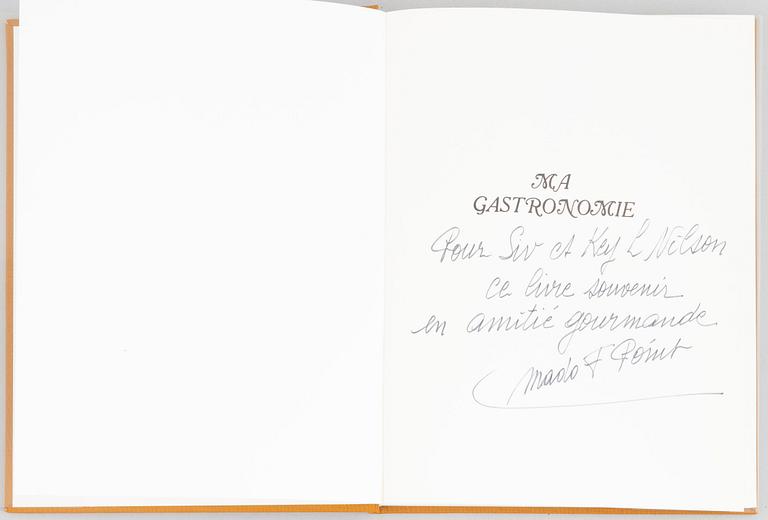 MA
GASTRONOMIE
Pour Siv et Key L Nilson
ce livre souvenir
en amitié gourmande
Mado F Point